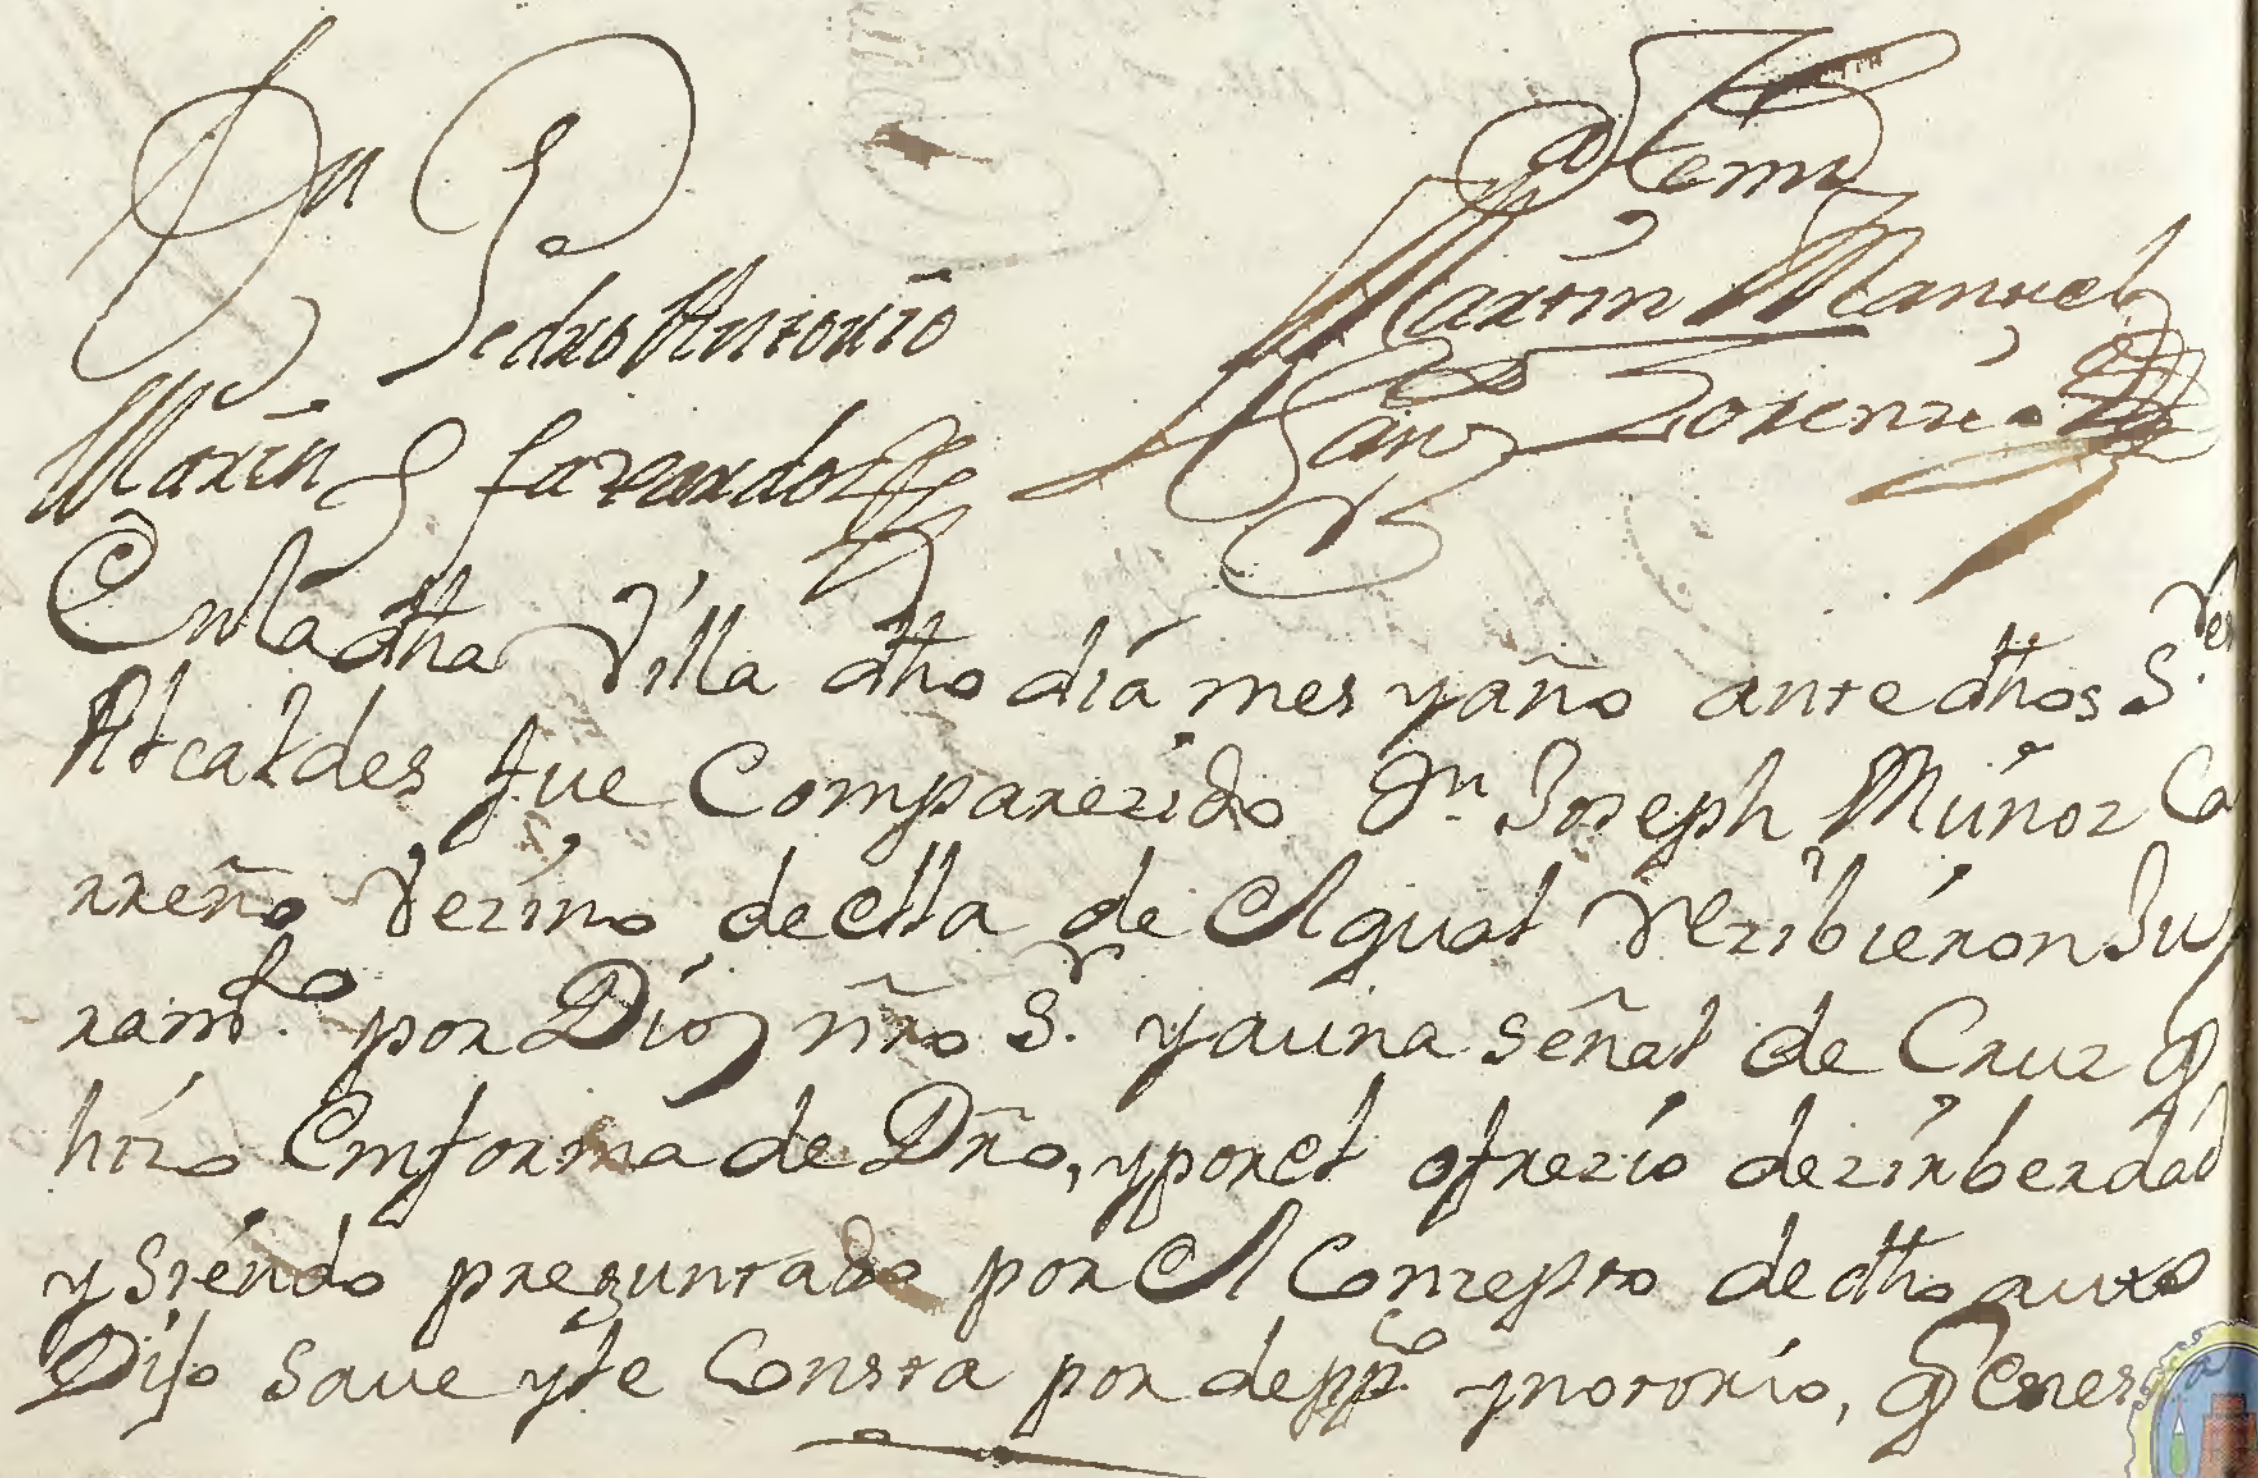 Dn Pedro Antonio
Marin y faxardo
Antemi
Martin Manuel
San Lorenzo
En la dha Villa dho dia mes y año ante dhos S.res
Alcaldes fue Comparezido Dn Joseph Muñoz Ca
rreño Vezino de ella de el qual Rezibieron Ju
ram.to por Dios ñro S.r y a una señal de Cruz q
hizo en forma de Dro, y por el ofrezio dezir berdad
y Siendo preguntado por el Conzepto de dho auto
Dijo save y le Consta por de pp.co y notorio, q en es